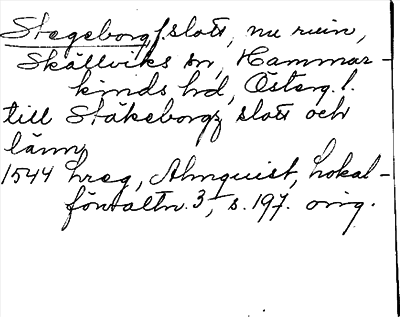 Stegeborg, f. slott, nu ruin,
Skällviks sn, Hammar-
kinds hd, Österg. l.
till Stäkeborgz slott och
länn
1544 hreg, Almquist, Lokal-
förvaltn. 3, s. 197. orig.